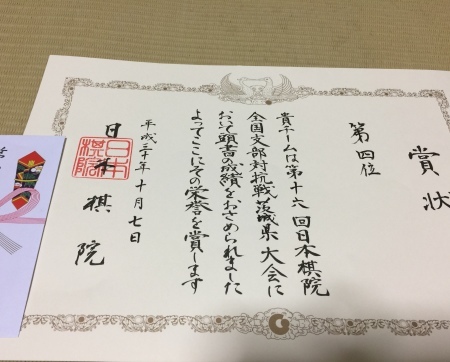 賞状
第四位
貴チームは第十六回日本棋院
全国支部対抗戦茨城県大会に
おいて頭書の成績をおさめられました
よってここにその栄誉を賞します
平成三十年十月七日
日本棋院
日本
棋院